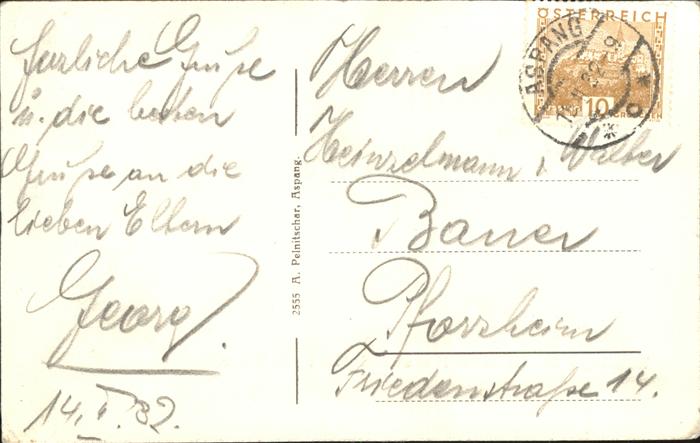 herzliche Grüße
u. die besten
Grüße an die
lieben Eltern
Georg.
14. I. 32.
2555 A. Pelnitschar, Aspang.
ÖSTERREICH
10
GROSCHEN
ASPANG
Herren
Heinzelmann, Walter
Bauer
Pforzheim
Friedenstraße 14.